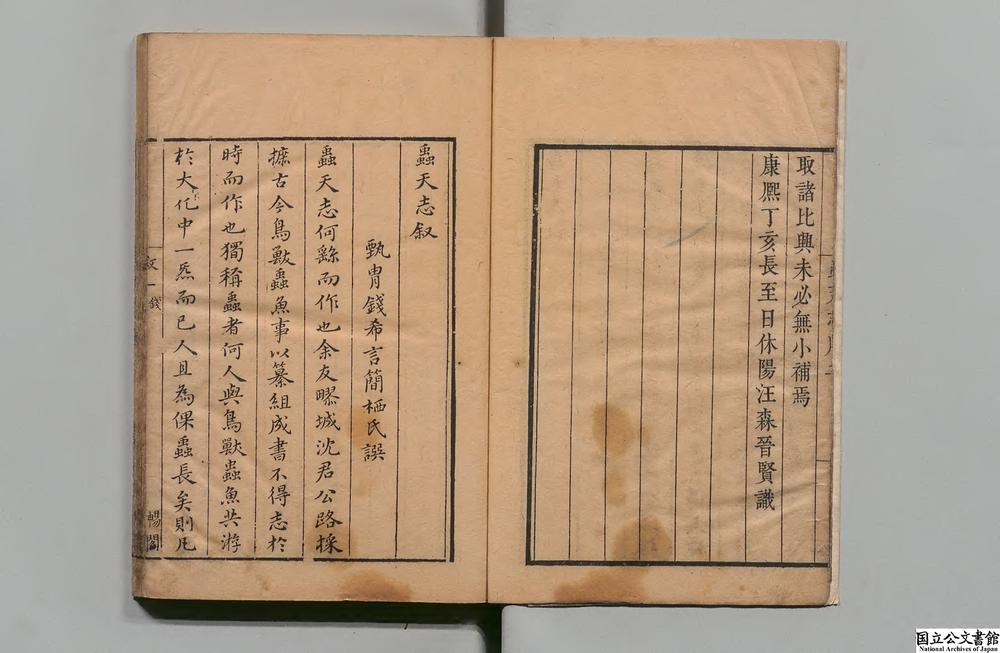 取諸比興未必無小補焉
康熙丁亥長至日休陽汪森晉賢識
蟲天志叙
甄冑錢希言簡栖氏譔
蟲天志何繇而作也余友疁城沈君公路採
摭古今鳥獸蟲魚事以纂組成書不得志於
時而作也獨稱蟲者何人與鳥獸蟲魚共游
於大化中一炁而已人且為倮蟲長矣則凡
叙一 錢
暢閣
国立公文書館
National Archives of Japan